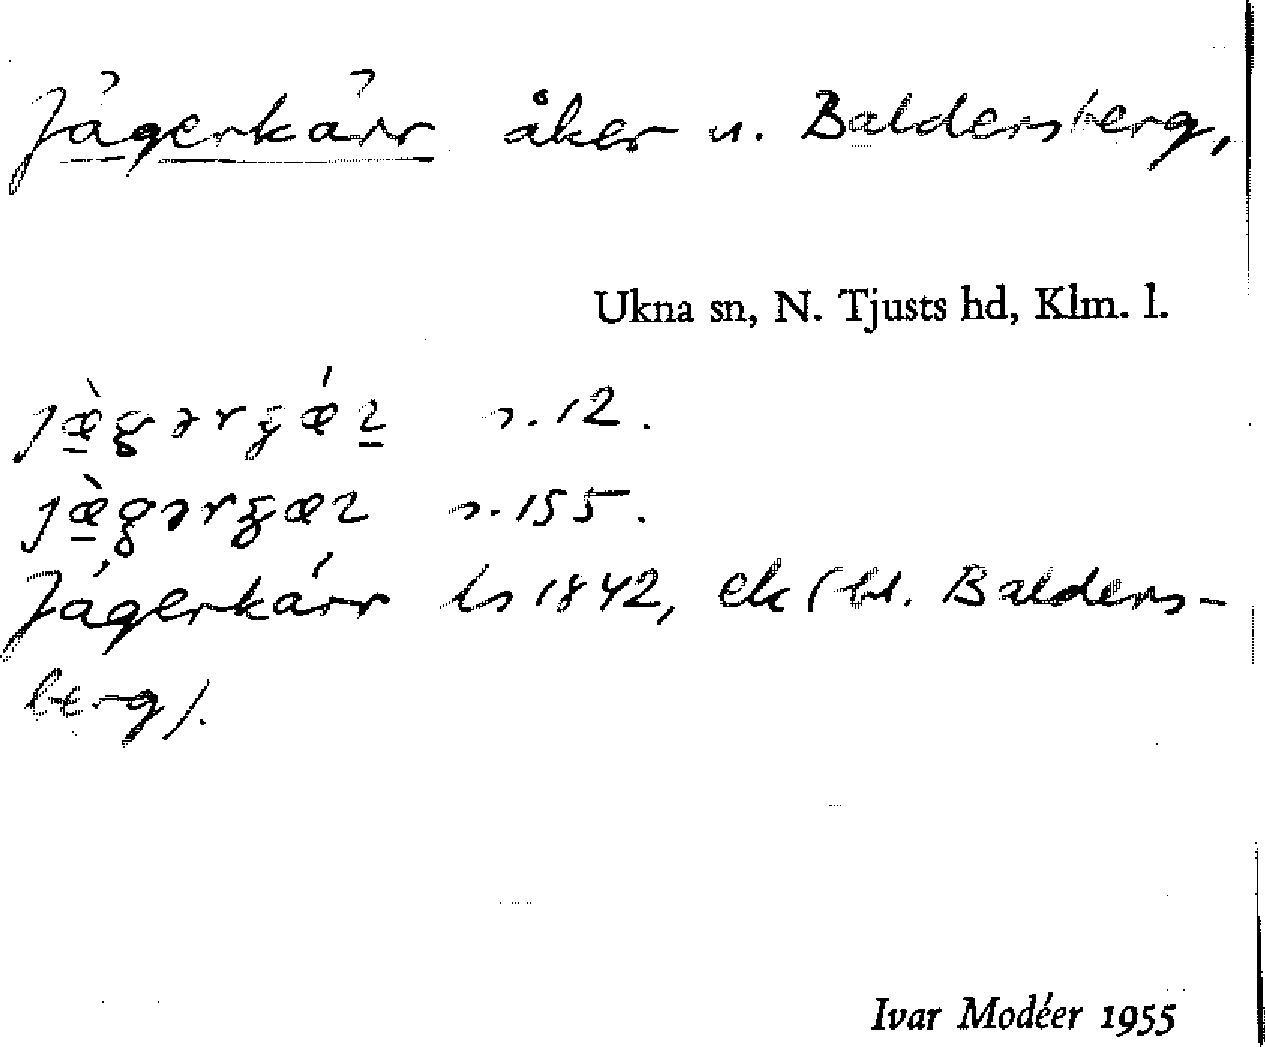 Jägerkärr åker u. Baldersberg,
Ukna sn, N. Tjusts hd, Klm. l.
s. 12.
s. 155.
Jägerkärr ls 1842, ek (bl. Balders-
berg).
Ivar Modéer 1955